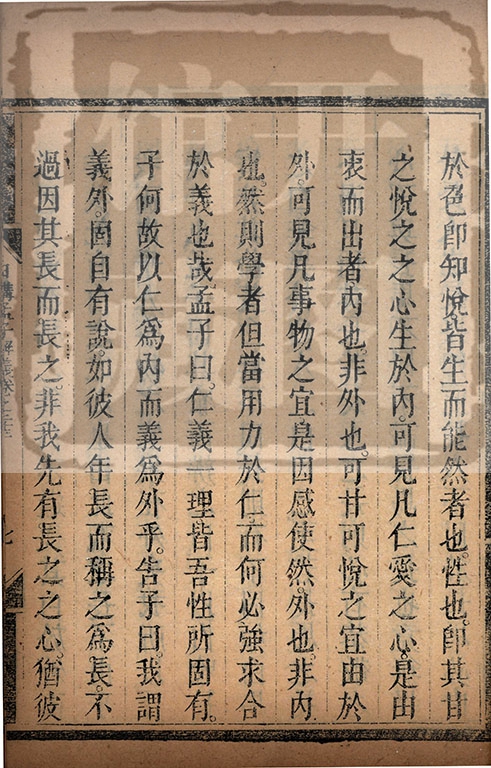 於色卽知悅皆生而能然者也性也卽其甘
之悅之之心生於內可見凡仁愛之心是由
衷而出者內也非外也可甘可悅之宜由於
外可見凡事物之宜是因感使然外也非內
也然則學者但當用力於仁而何必強求合
於義也哉孟子曰仁義一理皆吾性所固有
子何故以仁爲內而義爲外乎告子曰我謂
義外固自有說如彼人年長而稱之爲長不
過因其長而長之非我先有長之之心猶彼